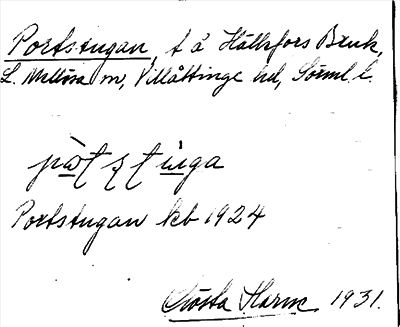 Portstugan, t å Hällefors Bruk,
L. Mellösa sn, Villåttinge hd, Sörml. l.
pὼtstùga
Portstugan kb 1924
Gösta 1931.